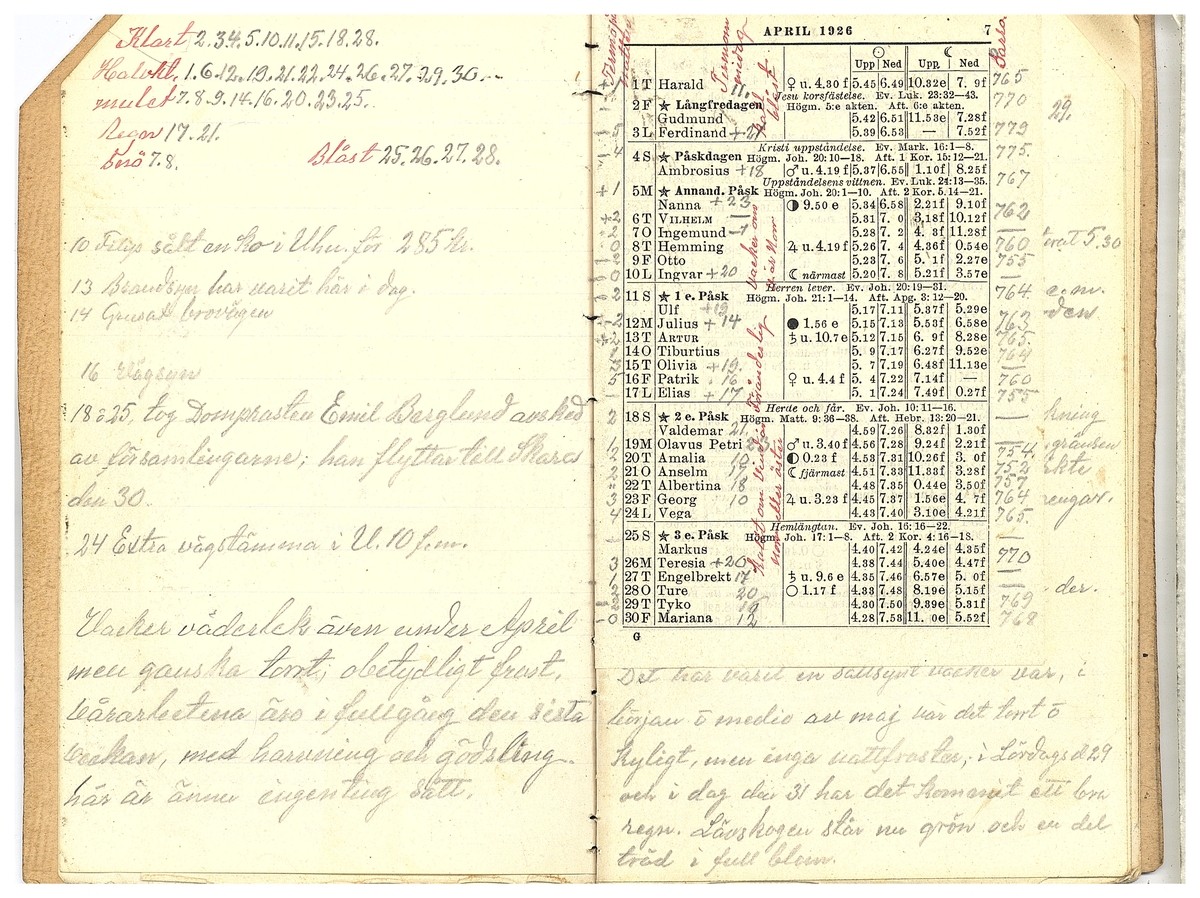 Klart 2.3.4.5.10.11.15.18.28.
Halvkl. 1.6.12.13.21.22.24.26.27.29.30.
mulet 7.8.9.14.16.20.23.25.
Regn 17.21.
Snö 7.8. Blåst 25.26.27.28.
10 sålt en ko i Uhn. för 285 kr.
13 Brandsyn har varit här i dag.
14 Grusat brovägen
16 Vägsyn
18 o 25 tog Domprosten Emil Berglund avsked
av församlingarne; han flyttar till Skara
den 30.
24 Extra vägstämma i U. 10 f.m.
Vacker väderlek även under April
men ganska torrt; obetydligt frost.
Vårarbetena äro i full gång den sista
veckan, med harvning och gödsling.
här är ännu ingenting sått.
APRIL 1926 7
☉ ☾
Upp Ned Upp Ned
1 T Harald 11. ♀ u. 4.30 f 5.45 6.49 10.32e 7. 9f 765
Jesu korsfästelse. Ev. Luk. 23:32—43.
2 F ★ Långfredagen Högm. 5:e akten. Aft. 6:e akten. 770 29.
Gudmund 5.42 6.51 11.53e 7.28f
3 L Ferdinand 5.39 6.53 — 7.52f 779
Kristi uppståndelse. Ev. Mark. 16:1—8.
4 S ★ Påskdagen Högm. Joh. 20:10—18. Aft. 1 Kor. 15:12—21. 775.
Ambrosius +18 ♂ u. 4.19 f 5.37 6.55 1.10f 8.25f
Uppståndelsens vittnen. Ev. Luk. 24:13—35. 767
5 M ★ Annand. Påsk Högm. Joh. 20:1—10. Aft. 2 Kor. 5.14—21.
Nanna +23 ◑ 9.50 e 5.34 6.58 2.21f 9.10f
6 T VILHELM — 5.31 7. 0 3.18f 10.12f 762
7 O Ingemund 5.28 7. 2 4. 3f 11.28f —
8 T Hemming ♃ u. 4.19 f 5.26 7. 4 4.36f 0.54e 760 5.30
9 F Otto 5.23 7. 6 5. 1f 2.27e 755
10 L Ingvar +20 ☾ närmast 5.20 7. 8 5.21f 3.57e —
Herren lever. Ev. Joh. 20:19—31.
11 S ★ 1 e. Påsk Högm. Joh. 21:1—14. Aft. Apg. 3:12—20. 764.
Ulf 5.17 7.11 5.37f 5.29e
12 M Julius +14 ● 1.56 e 5.15 7.13 5.53f 6.58e
13 T ARTUR ♄ u. 10.7 e 5.12 7.15 6. 9f 8.28e
14 O Tiburtius 5. 9 7.17 6.27f 9.52e
15 T Olivia 5. 7 7.19 6.48f 11.13e
16 F Patrik 16 ♀ u. 4.4 f 5. 4 7.22 7.14f — 760
17 L Elias +17 5. 1 7.24 7.49f 0.27f 755
Herde och får. Ev. Joh. 10:11—16.
18 S ★ 2 e. Påsk Högm. Matt. 9:36—38. Aft. Hebr. 13:20—21. —
Valdemar 21. 4.59 7.26 8.32f 1.30f
19 M Olavus Petri ♂ u. 3.40 f 4.56 7.28 9.24f 2.21f —
20 T Amalia 10 ◐ 0.23 f 4.53 7.31 10.26f 3. 0f 754.
21 O Anselm 17 ☾ fjärmast 4.51 7.33 11.33f 3.28f 752
22 T Albertina 18 4.48 7.35 0.44e 3.50f 757
23 F Georg 10 ♃ u. 3.23 f 4.45 7.37 1.56e 4. 7f 764
24 L Vega 4.43 7.40 3.10e 4.21f 765.
Hemlängtan. Ev. Joh. 16:16—22.
25 S ★ 3 e. Påsk Högm. Joh. 17:1—8. Aft. 2 Kor. 4:16—18. —
Markus 4.40 7.42 4.24e 4.35f 770
26 M Teresia +20 4.38 7.44 5.40e 4.47f
27 T Engelbrekt 17 ♄ u. 9.6 e 4.35 7.46 6.57e 5. 0f —
28 O Ture 20 ○ 1.17 f 4.33 7.48 8.19e 5.15f — der.
29 T Tyko 19 4.30 7.50 9.39e 5.31f 769
30 F Mariana 12 4.28 7.53 11. 0e 5.52f 768
G
Det har varit en sällsynt vacker vår, i
början o medio av maj var det torrt o
kyligt, men inga nattfroster; i Lördags d 29
och i dag den 31 har det kommit ett bra
regn. Lövskogen står nu grön och en del
träd i full blom.